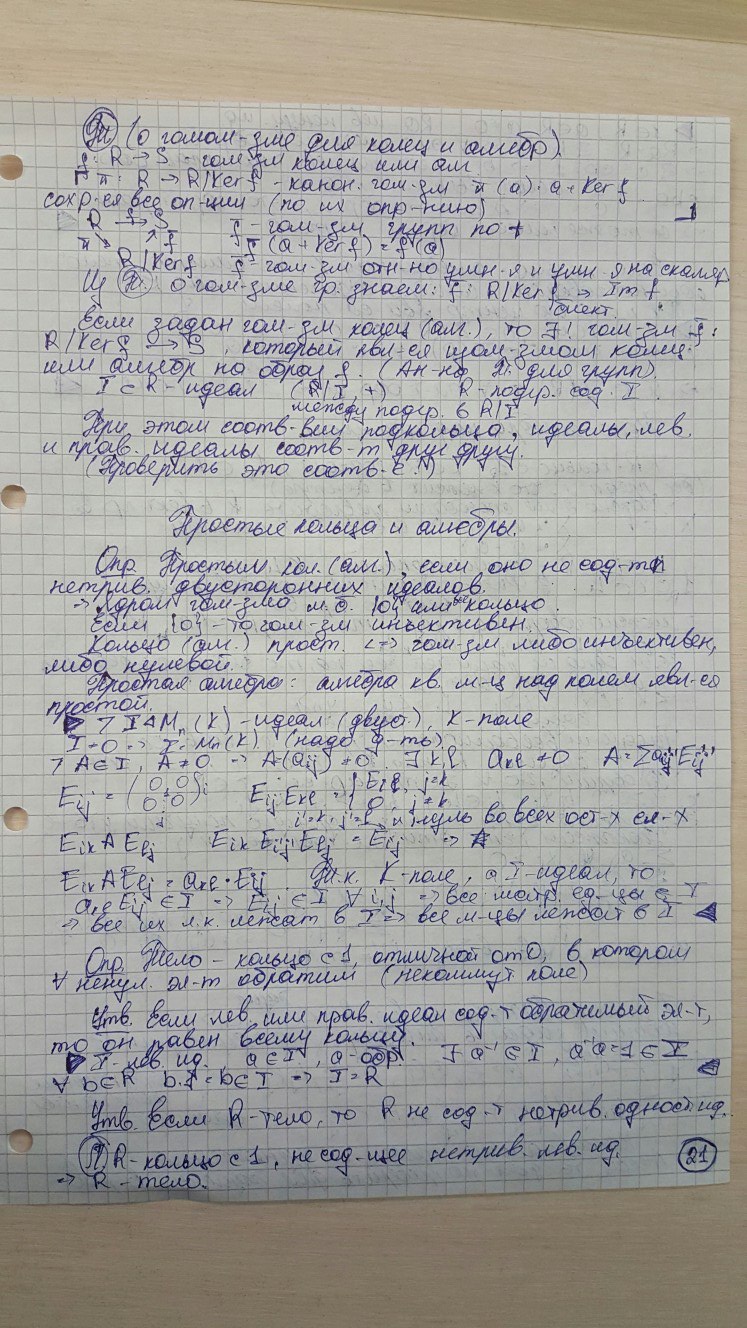 Т. (о гомом-зме для колец и алгебр).
f: R → S - гом-зм колец или алг.
π: R → R/Ker f - канон. гом-зм π(a) = a + Ker f
сохр-ся все оп-ции (по их опр-нию)
R →f S f̄ - гом-зм групп по +
π ↘ ↗ f̄ f̄(a + Ker f) = f(a)
R/Ker f f̄ - гом-зм отн-но умн-я и умн-я на скаляр
Из Т. о гом-зме гр. знаем: f̄: R/Ker f → Im f
Если задан гом-зм колец (алг.), то ∃! гом-зм f̄:
R/Ker f → S, который явл-ся изом-змом колец
или алгебр на образ f. (Ан-но Т. для групп).
I ⊂ R - идеал (R/I, +) R - подгр. сод. I
между подгр. в R/I
При этом соотв-вии подкольца, идеалы, лев.
и прав. идеалы соотв-т друг другу.
(Проверить это соотв-е!)
Простые кольца и алгебры.
Опр. Простым кол. (алг.), если оно не сод-т
нетрив. двусторонних идеалов.
→ Ядром гом-зма м.б. {0} или все кольцо.
Если {0} - то гом-зм инъективен.
Кольцо (алг.) прост. <=> гом-зм либо инъективен,
либо нулевой.
Простая алгебра: алгебра кв. м-ц над полем явл-ся
простой.
▶ I ⊲ Mn(K) - идеал (двус.), K - поле
I ≠ 0 => I = Mn(K) (надо д-ть)
A ∈ I, A ≠ 0 => A = (aij) ≠ 0 ∃ k, l akl ≠ 0 A = Σ ai'j' Ei'j'
Eij = (0 0 0 0) i j Eij Ekl = { Eil, j = k 0, j ≠ k
i' = k, j' = l, и нуль во всех ост-х сл-х
Eik A Elj Eik Ei'j' Elj = Eij =>
Eik A Elj = akl · Eij Т.к. K - поле, а I - идеал, то
akl Eij ∈ I => Eij ∈ I ∀ i, j => все матр. ед-цы ∈ I
=> все их л.к. лежат в I => все м-цы лежат в I ◀
Опр. Тело - кольцо с 1, отличной от 0, в котором
∀ ненул. эл-т обратим (некоммут. поле)
Утв. Если лев. или прав. идеал сод-т обратимый эл-т,
то он равен всему кольцу.
▶ I - лев. ид., a ∈ I, a - обр. ∃ a⁻¹ ∈ I, a⁻¹a = 1 ∈ I
∀ b ∈ R b·1 = b ∈ I => I = R ◀
Утв. Если R - тело, то R не сод-т нетрив. одност. ид.
Т. R - кольцо с 1, не сод-щее нетрив. лев. ид.
=> R - тело.
21